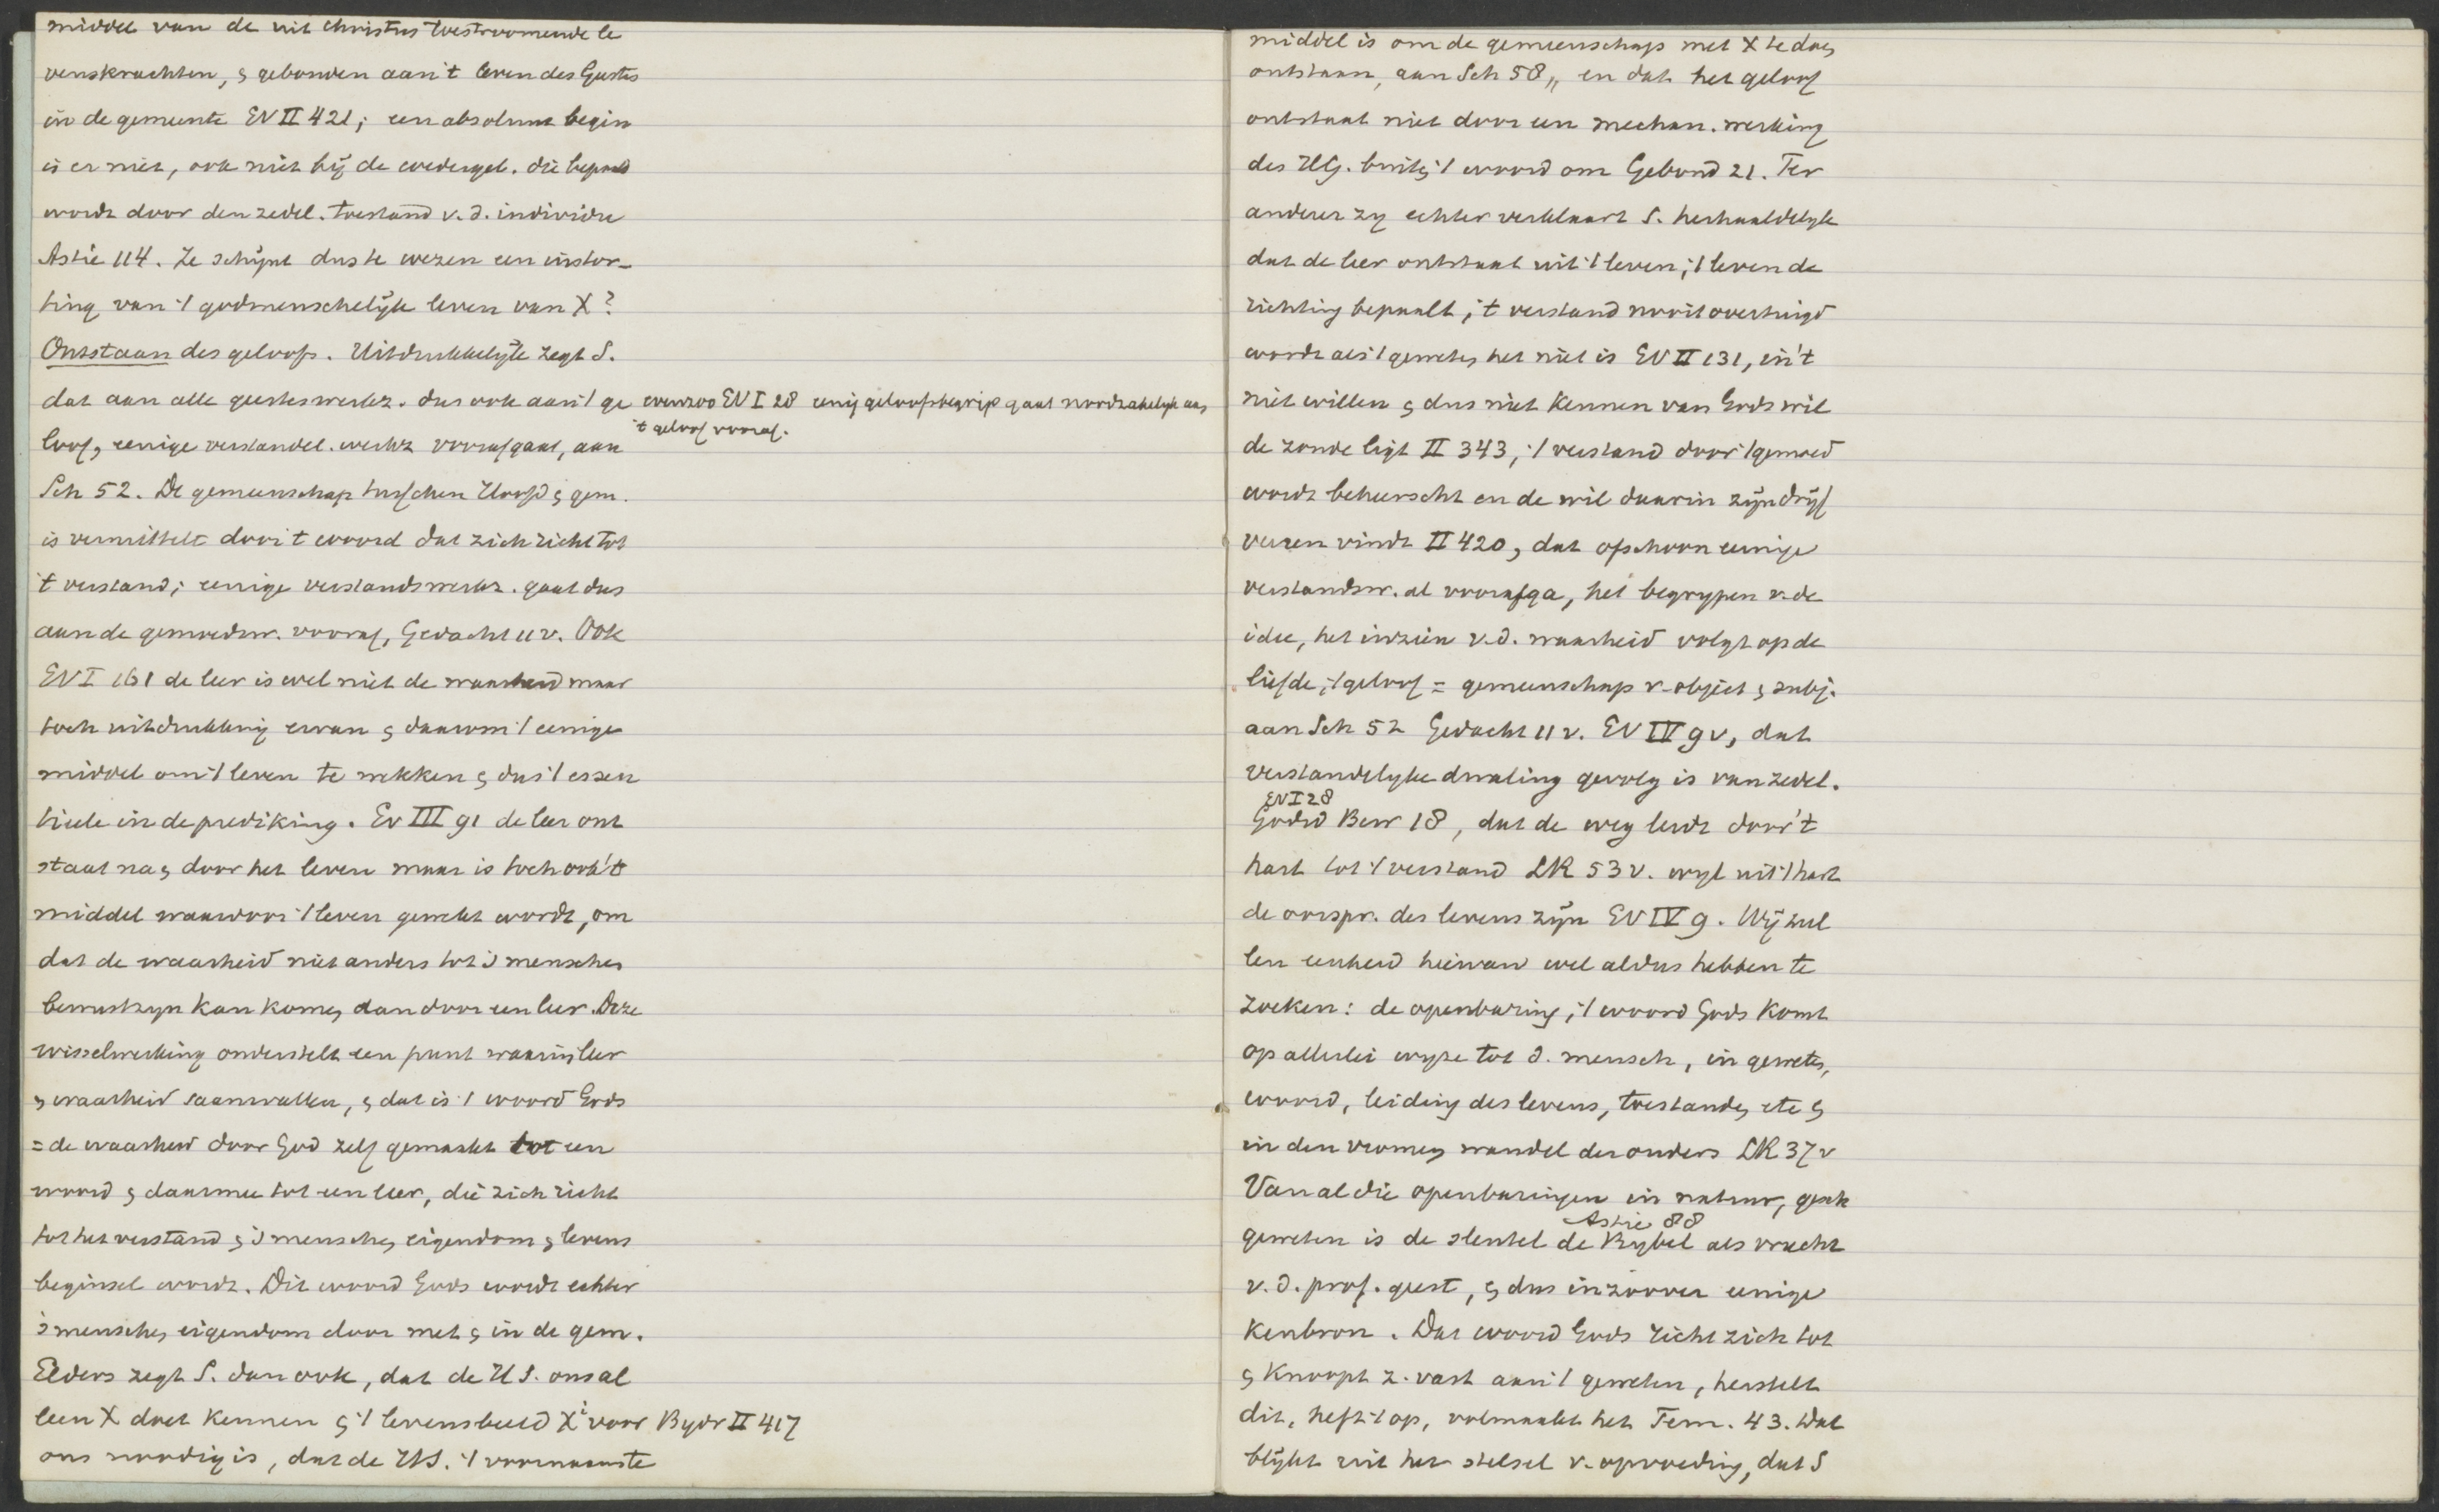 middel van de uit Christus toestroomende le
venskrachten, & gebonden aan 't leven des Geestes
in de gemeente EV II 421; een absoluut begin
is er niet, ook niet bij de wedergeb. die bepaald
wordt door den zedel. toestand v.d. individu
Astié 114. Ze schijnt dus te wezen een instor-
ting van 't godmenschelijk leven van X?
Ontstaan des geloofs. Uitdrukkelijk zegt S.
dat aan alle geesteswerkz. dus ook aan 't ge
loof, eenige verstandel. werkz voorafgaat, aan
Sch 52. De gemeenschap tusschen Hoofd & gem.
is vermittelt door 't woord dat zich richt tot
't verstand; eenige verstandswerkz. gaat dus
aan de gemoedsw. vooraf, Gedacht 11 v. Ook
EV I 161 de leer is wel niet de waarheid maar
toch uitdrukking ervan & daarom 't eenige
middel om 't leven te wekken & dus 't essen
tieele in de prediking. Ev III 91 de leer ont
staat na & door het leven maar is toch ook 't
middel waardoor 't leven gewekt wordt, om
dat de waarheid niet anders tot 's menschen
bewustzyn kan komen dan door een leer. Deze
wisselwerking onderstelt een punt waarin leer
& waarheid saamvallen, & dat is 't woord Gods
= de waarheid door God zelf gemaakt tot een
woord & daarmee tot een leer, die zich richt
tot het verstand & 's menschen eigendom & levens
beginsel wordt. Dit woord Gods wordt echter
's menschen eigendom door met & in de gem.
Elders zegt S. dan ook, dat de H S. ons al
leen X doet kennen & 't levensbeeld Xi voor Bydr II 417
ons noodig is, dat de HS. 't voornaamste
evenzoo EV I 28 eenig geloofsbegrip gaat noodzakelijk aan
't geloof vooraf.
middel is om de gemeenschap met X te doen
ontstaan, aan Sch 58,, en dat het geloof
ontstaat niet door een mechan. werking
des HG. buiten 't woord om Gebond 21. Ter
anderer zy echter verklaart S. herhaaldelyk
dat de leer ontstaat uit 't leven; 't leven de
richting bepaalt; 't verstand nooit overtuigd
wordt als 't geweten het niet is EV II 131, in 't
niet willen & dus niet kennen van Gods wil
de zonde ligt II 343, 't verstand door 't gemoed
wordt beheerscht en de wil daarin zijn drijf
veeren vindt II 420, dat ofschoon eenige
verstandsw. al voorafga, het begrypen v. de
idee, het inzien v.d. waarheid volgt op de
liefde, 't geloof = gemeenschap v. object & subj.
aan Sch 52 Gedacht 11 v. EV IV 9 v, dat
verstandelyke dwaling gevolg is van zedel.
EV I 28
Godsd Bew 18, dat de weg leidt door 't
hart tot 't verstand LR 53 v. wyl uit 't hart
de oorspr. des levens zijn EV IV 9. Wij zul
len eenheid hiervan wel aldus hebben te
zoeken: de openbaring, 't woord Gods komt
op allerlei wyze tot d. mensch, in geweten,
woord, leiding des levens, toestanden etc &
in den vromen wandel der ouders LR 37 v
Van al die openbaringen in natuur, gesch
Astié 88
geweten is de sleutel de Bybel als vrucht
v. d. prof. geest, & dus inzoover eenige
kenbron. Dat woord Gods richt zich tot
& knoopt z. vast aan 't geweten, herstelt
dit, heft 't op, volmaakt het Tem. 43. Dat
blijkt uit het stelsel v. opvoeding, dat S